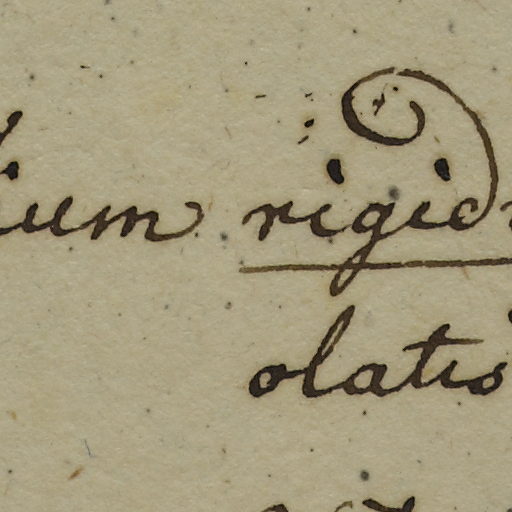 ium rigid
olatis